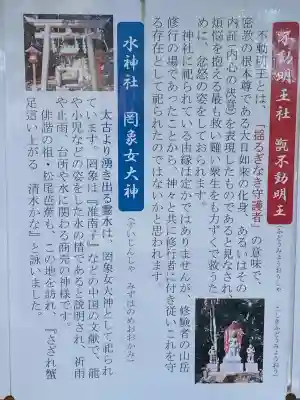 不動明王社 甑不動明王
(ふどうみょうおうしゃ こしきふどうみょうおう)
不動明王とは、「揺るぎなき守護者」の意味で、
密教の根本尊である大日如来の化身、あるいはその
内証(内心の決意)を表現したものであると見なされ、
煩悩を抱える最も救い難い衆生をも力ずくで救うた
めに、忿怒の姿をしておられます。
神社に祀られている由縁は定かではありませんが、修験者の山岳
修行の場であったことから、神々と共に修行者に付き従いこれを守
る存在として祀られたのではないかと思われます。
水神社 罔象女大神
(すいじんしゃ みずはのめおおかみ)
太古より湧き出る霊水は、罔象女大神として祀られ
ています。罔象は『淮南子』などの中国の文献で、龍
や小児などの姿をした水の精であると説明され、祈雨
や止雨、台所や水に関わる商売の神様です。
俳諧の祖・松尾芭蕉も、この地を訪れ、『さざれ蟹
足這い上がる 清水かな』と詠いました。